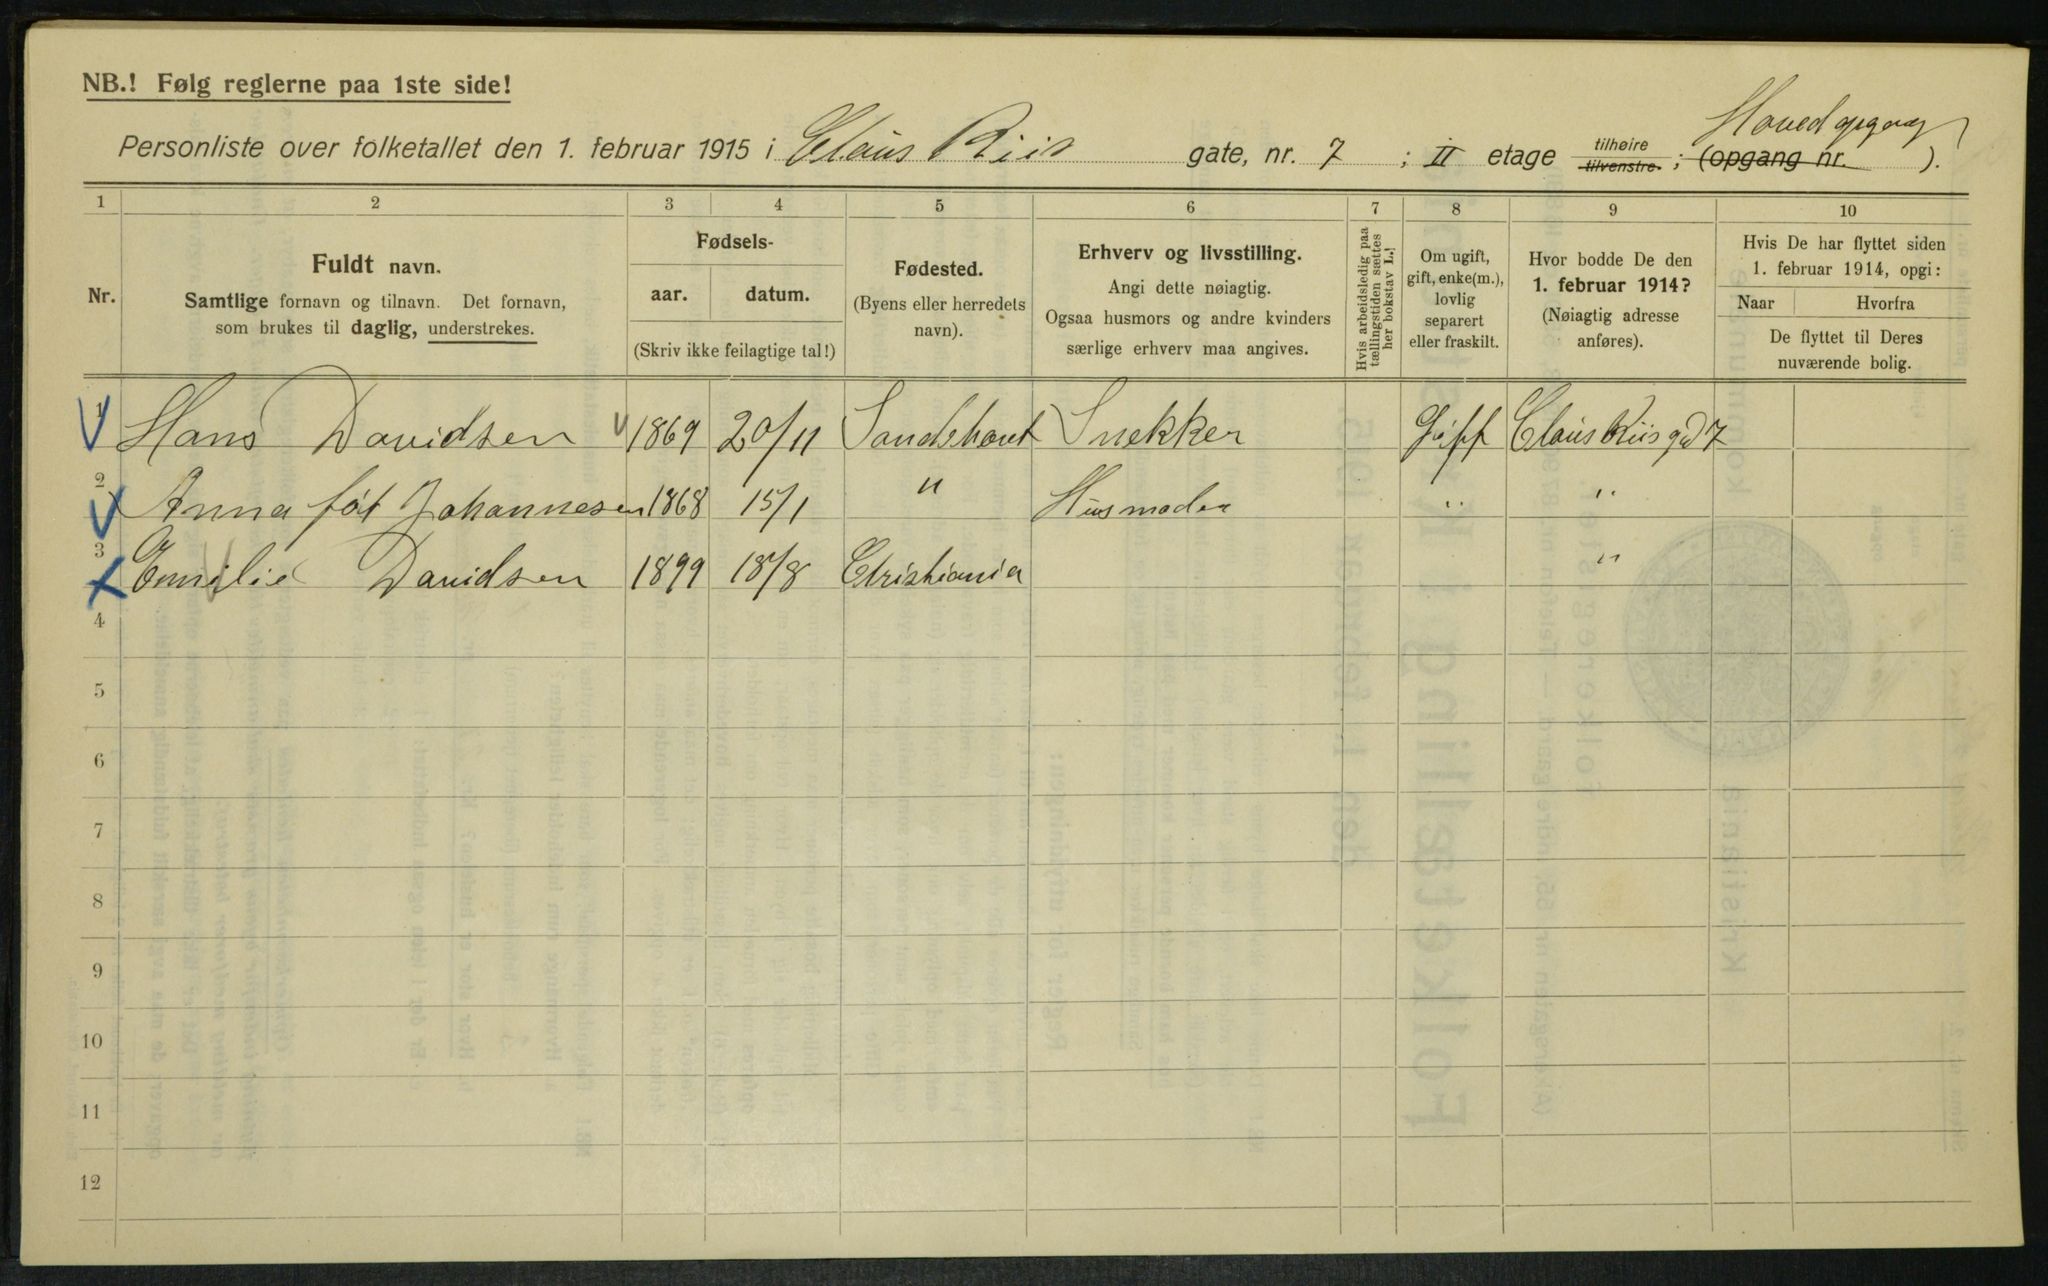 NB.! Følg reglerne paa 1ste side!
Hovedopgang
Personliste over folketallet den 1. februar 1915 i Claus Riis gate, nr. 7 ; II etage tilhøire tilvenstre. ; (opgang nr. ).
1 2 3 4 5 6 7 8 9 10
Nr.
Fuldt navn.
Samtlige fornavn og tilnavn. Det fornavn,
som brukes til daglig, understrekes.
Fødsels-
aar. datum.
(Skriv ikke feilagtige tal!)
Fødested.
(Byens eller herredets
navn).
Erhverv og livsstilling.
Angi dette nøiagtig.
Ogsaa husmors og andre kvinders
særlige erhverv maa angives.
Hvis arbeidsledig paa
tællingstiden sættes
her bokstav L.!
Om ugift,
gift, enke(m.),
lovlig
separert
eller fraskilt.
Hvor bodde De den
1. februar 1914?
(Nøiagtig adresse
anføres).
Hvis De har flyttet siden
1. februar 1914, opgi:
Naar Hvorfra
De flyttet til Deres
nuværende bolig.
1 Hans Davidsen 1869 20/11 Snekker Claus Riis gd 7
2 Anna føt Johannesen 1868 15/1 " Husmoder " "
3 Emilie Davidsen 1899 18/8 Christiania "
4
5
6
7
8
9
10
11
12